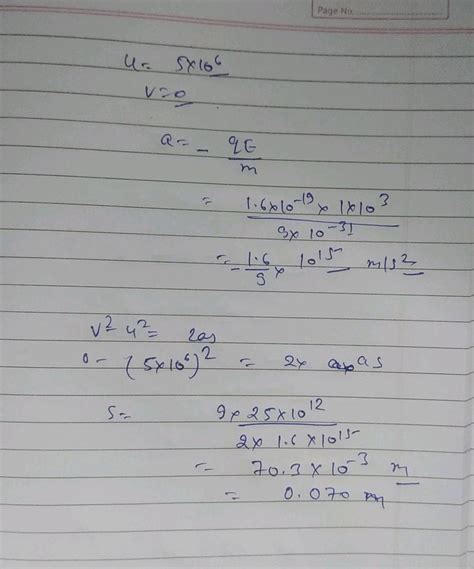 Page No.
u= 5×10⁶
v=0
a= - qE/m
= 1.6×10⁻¹⁹ × 1×10³ / 9×10⁻³¹
= -1.6/9 × 10¹⁵ m/s²
v²-u²= 2as
0- (5×10⁶)² = 2× a×s
s= 9×25×10¹² / 2×1.6×10¹⁵
= 70.3×10⁻³ m
= 0.070 m